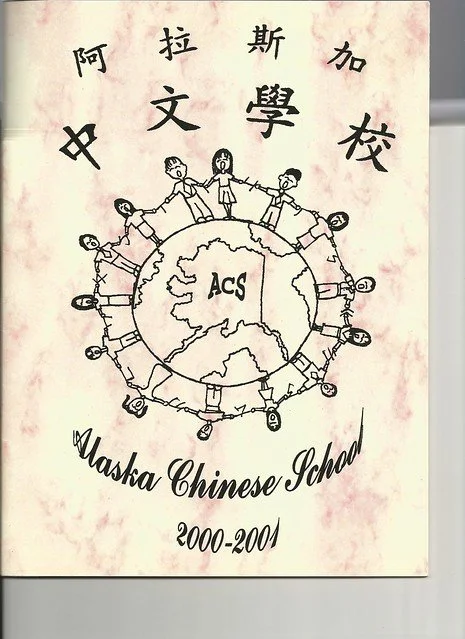 阿拉斯加
中文學校
ACS
Alaska Chinese School
2000-2001